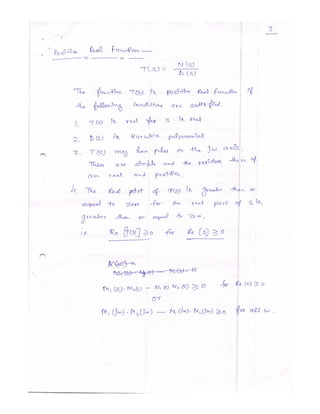 3
Positive Real Function —
T(s) = N(s)
D(s)
The function T(s) is positive Real Function if
the following conditions are satisfied.
1. T(s) is real for s is real
2. D(s) is Hurwitz polynomial
3. T(s) may have poles on the jw axis.
These are simple and the residue of
are real and positive.
4. The Real part of T(s) is greater than or
equal to zero for the real part of s is
greater than or equal to zero.
i.e. Re [T(s)] ≥ 0 for Re [s] ≥ 0
M₁(s)·M₂(s) − N₁(s) N₂(s) ≥ 0 for Re(s) ≥ 0
or
M₁(jw)·M₂(jw) — N₁(jw)·N₂(jw) ≥ 0 for all w.